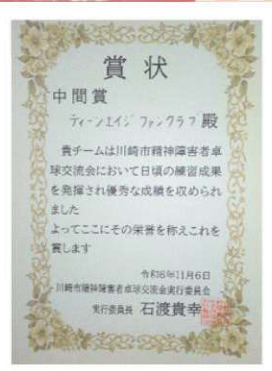 賞状
中間賞
ティーンエイジ ファンクラブ殿
貴チームは川崎市精神障害者卓
球交流会において日頃の練習成果
を発揮され優秀な成績を収められ
ました
よってここにその栄誉を称えこれを
賞します
令和6年11月6日
川崎市精神障害者卓球交流会実行委員会
実行委員長 石渡貴幸